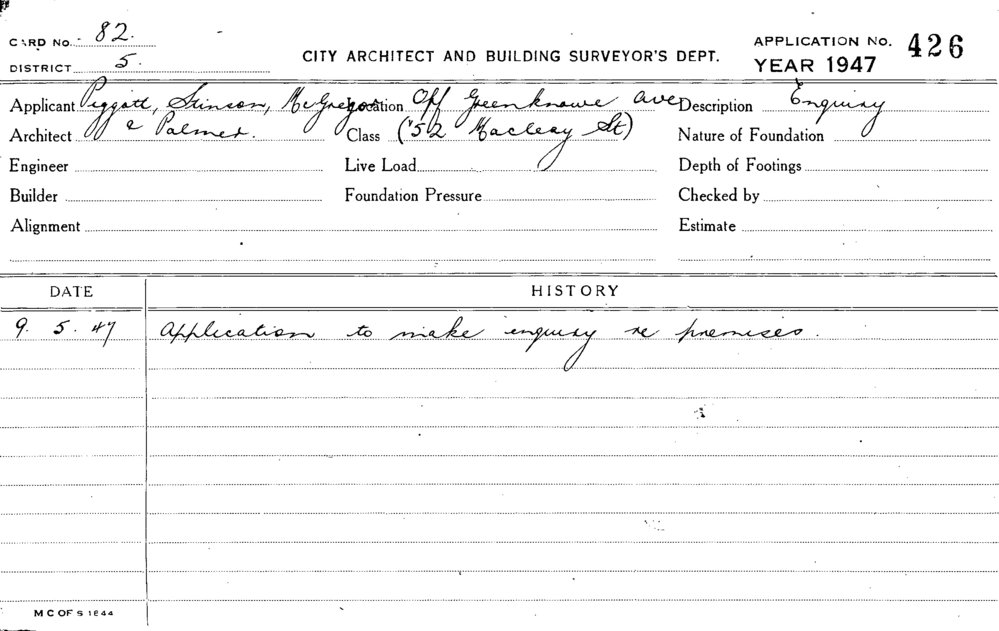 CARD No. 82.
DISTRICT 5.
CITY ARCHITECT AND BUILDING SURVEYOR'S DEPT.
APPLICATION No. 426
YEAR 1947
Applicant Piggott, Stinson, McGregor Location Off Greenknowe Ave Description Enquiry
Architect & Palmer. Class (52 Macleay St) Nature of Foundation
Engineer Live Load Depth of Footings
Builder Foundation Pressure Checked by
Alignment Estimate
DATE HISTORY
9. 5. 47 Application to make enquiry re premises.
M C OF S 1844